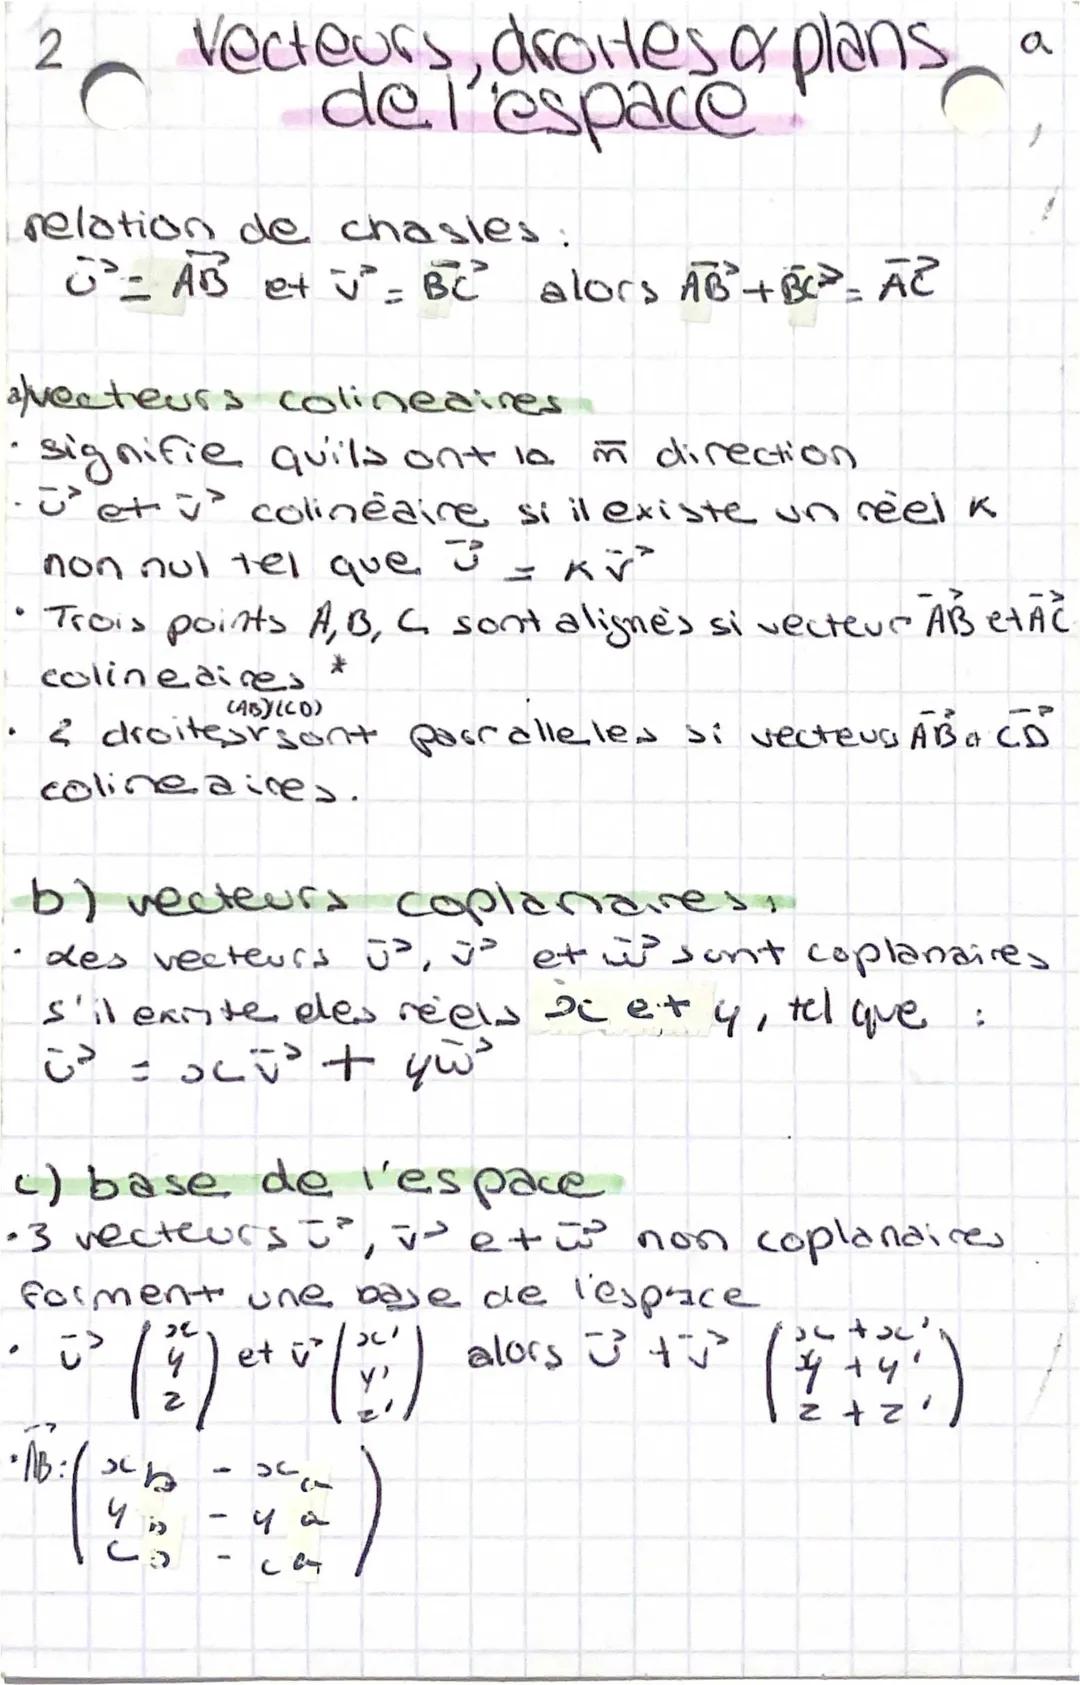 2 Vecteurs, droites & plans a
de l'espace.
relation de chasles :
u⃗ = AB⃗ et v⃗ = BC⃗ alors AB⃗ + BC⃗ = AC⃗
a) vecteurs colineaires
· signifie qu'ils ont la m̄ direction
· u⃗ et v⃗ colinéaire si il existe un réel K
non nul tel que u⃗ = K v⃗
· Trois points A, B, C sont alignés si vecteur AB⃗ et AC⃗
colineaires *
(AB)(CD)
· 2 droites sont parralleles si vecteurs AB⃗ & CD⃗
colineaires.
b) vecteurs coplanaires,
· des vecteurs u⃗, v⃗ et w⃗ sont coplanaires
s'il existe des réels x et y, tel que :
u⃗ = xv⃗ + yw⃗
c) base de l'espace
· 3 vecteurs u⃗, v⃗ et w⃗ non coplanaires
forment une base de l'espace
· u⃗ (x y z) et v⃗ (x' y' z') alors u⃗ + v⃗ (x + x' y + y' z + z')
· AB⃗ : (x b - x a
y b - y a
c b - c a)